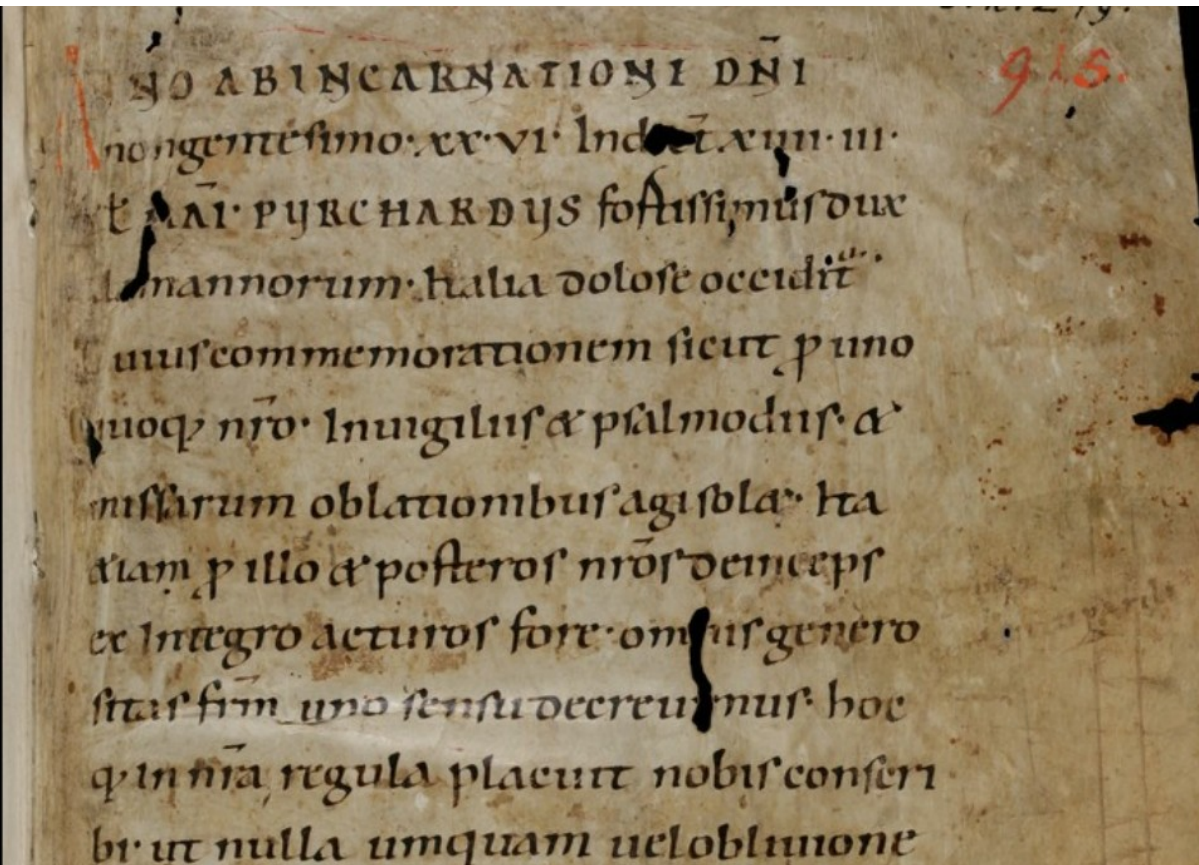 915.
NNO AB INCARNATIONE DN̄I
nongentesimo· xx·vi· Indict̄ xiiii· iii·
kł MAĪ· PURCHARDUS fortissimus dux
alamannorum· Italia dolose occidit̄
uius commemorationem sicut p̱ uno
quoq; nr̄o· In uigiliis & psalmodiis· &
missarum oblationibus agi sol&· Ita
&iam p̱ illo & posteros nr̄os deinceps
ex Integro acturos fore· omnis genero
sitas fr̄m uno sensu decreuimus· hoc
q; in nr̄a regula placuit nobis conscri
bi· ut nulla umquam uel obliuione